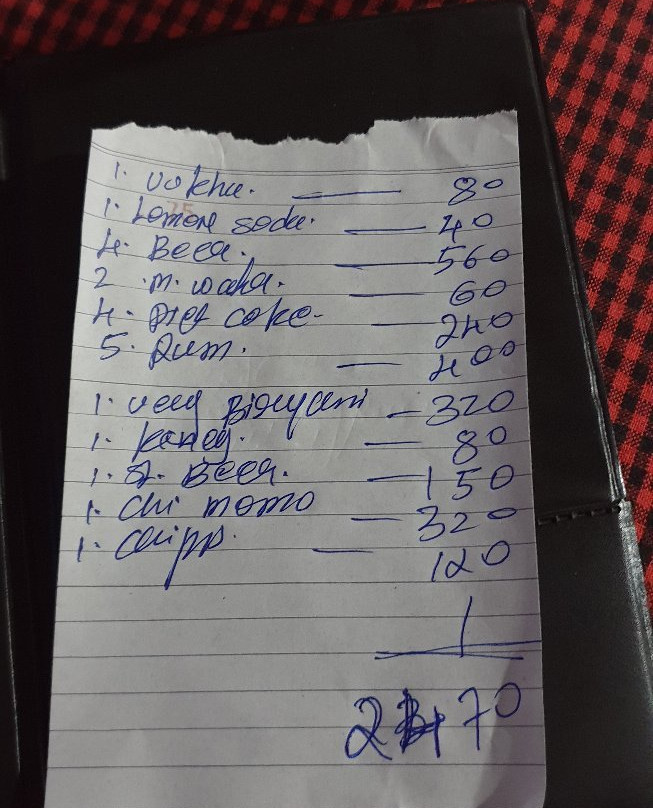 1. Vokha. — 80
1. Lemon soda. — 40
4. Beer. — 560
2 .m. wata. — 60
4. Diet coke- — 240
5. Rum. — 400
1. veg Biryani — 320
1. — 80
1. Beer. — 150
1. Chi momo — 320
1. Chipp. — 120
2470